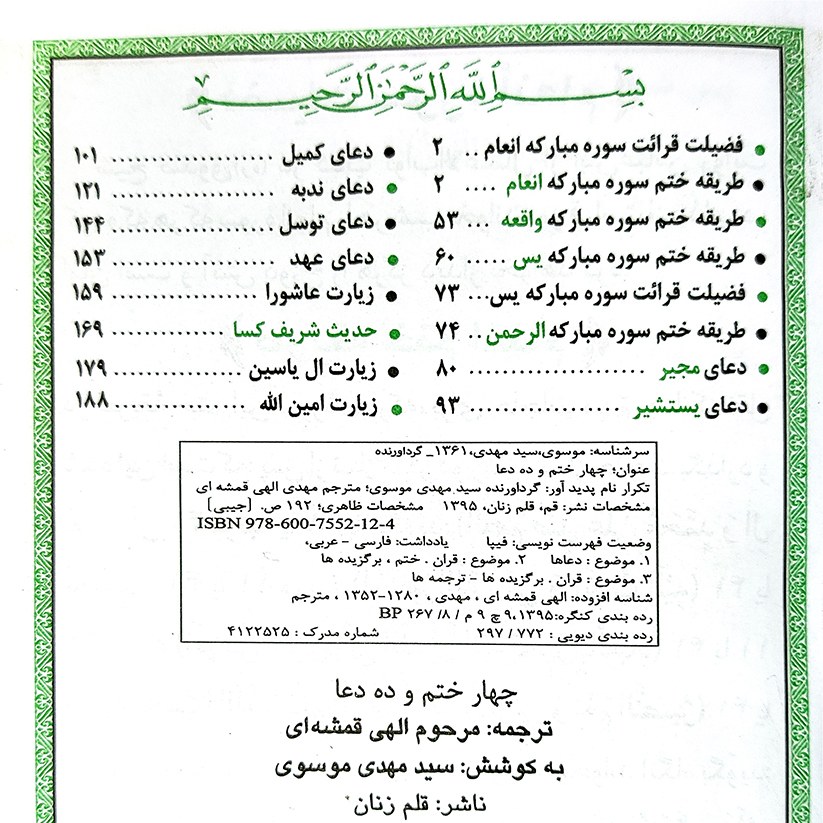 بِسْمِ اللَّهِ الرَّحْمَٰنِ الرَّحِيمِ
فضیلت قرائت سوره مبارکه انعام .... ۲
طریقه ختم سوره مبارکه انعام .... ۲
طریقه ختم سوره مبارکه واقعه ... ۵۳
طریقه ختم سوره مبارکه یس ..... ۶۰
فضیلت قرائت سوره مبارکه یس... ۷۳
طریقه ختم سوره مبارکه الرحمن .. ۷۴
دعای مجیر ...................... ۸۰
دعای یستشیر ................... ۹۳
دعای کمیل .................... ۱۰۱
دعای ندبه .................... ۱۲۱
دعای توسل .................... ۱۴۴
دعای عهد .................... ۱۵۳
زیارت عاشورا .................. ۱۵۹
حدیث شریف کسا .............. ۱۶۹
زیارت ال یاسین ................ ۱۷۹
زیارت امین الله ................ ۱۸۸
سرشناسه: موسوی،سید مهدی،۱۳۶۱_ گردآورنده
عنوان؛ چهار ختم و ده دعا
تکرار نام پدید آور: گردآورنده سید مهدی موسوی؛ مترجم مهدی الهی قمشه ای
مشخصات نشر: قم، قلم زنان، ۱۳۹۵ مشخصات ظاهری؛ ۱۹۲ ص. (جیبی)
ISBN 978-600-7552-12-4
وضعیت فهرست نویسی: فیپا یادداشت: فارسی - عربی،
۱. موضوع : دعاها ۲. موضوع : قران . ختم ، برگزیده ها
۳. موضوع : قران . برگزیده ها - ترجمه ها
شناسه افزوده: الهی قمشه ای ، مهدی ، ۱۲۸۰-۱۳۵۲ ، مترجم
رده بندی کنگره:۹،۱۳۹۵ چ ۹ م / ۸/ ۲۶۷ BP
رده بندی دیویی : ۷۷۲ / ۲۹۷ شماره مدرک : ۴۱۲۲۵۲۵
چهار ختم و ده دعا
ترجمه: مرحوم الهی قمشه‌ای
به کوشش: سید مهدی موسوی
ناشر: قلم زنان